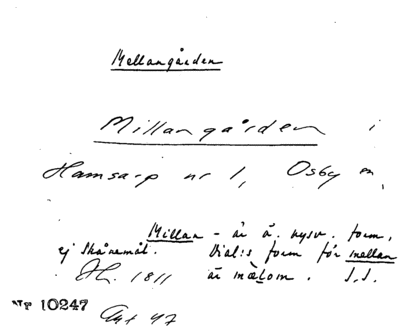 Mellangården
Millangården i
Hamsarp nr 1, Osby sn,
Millan- är ä. nysv. form,
ej skånemål. Dial:s form för mellan
1811 är mælom. S.S.
Nr 10247
47